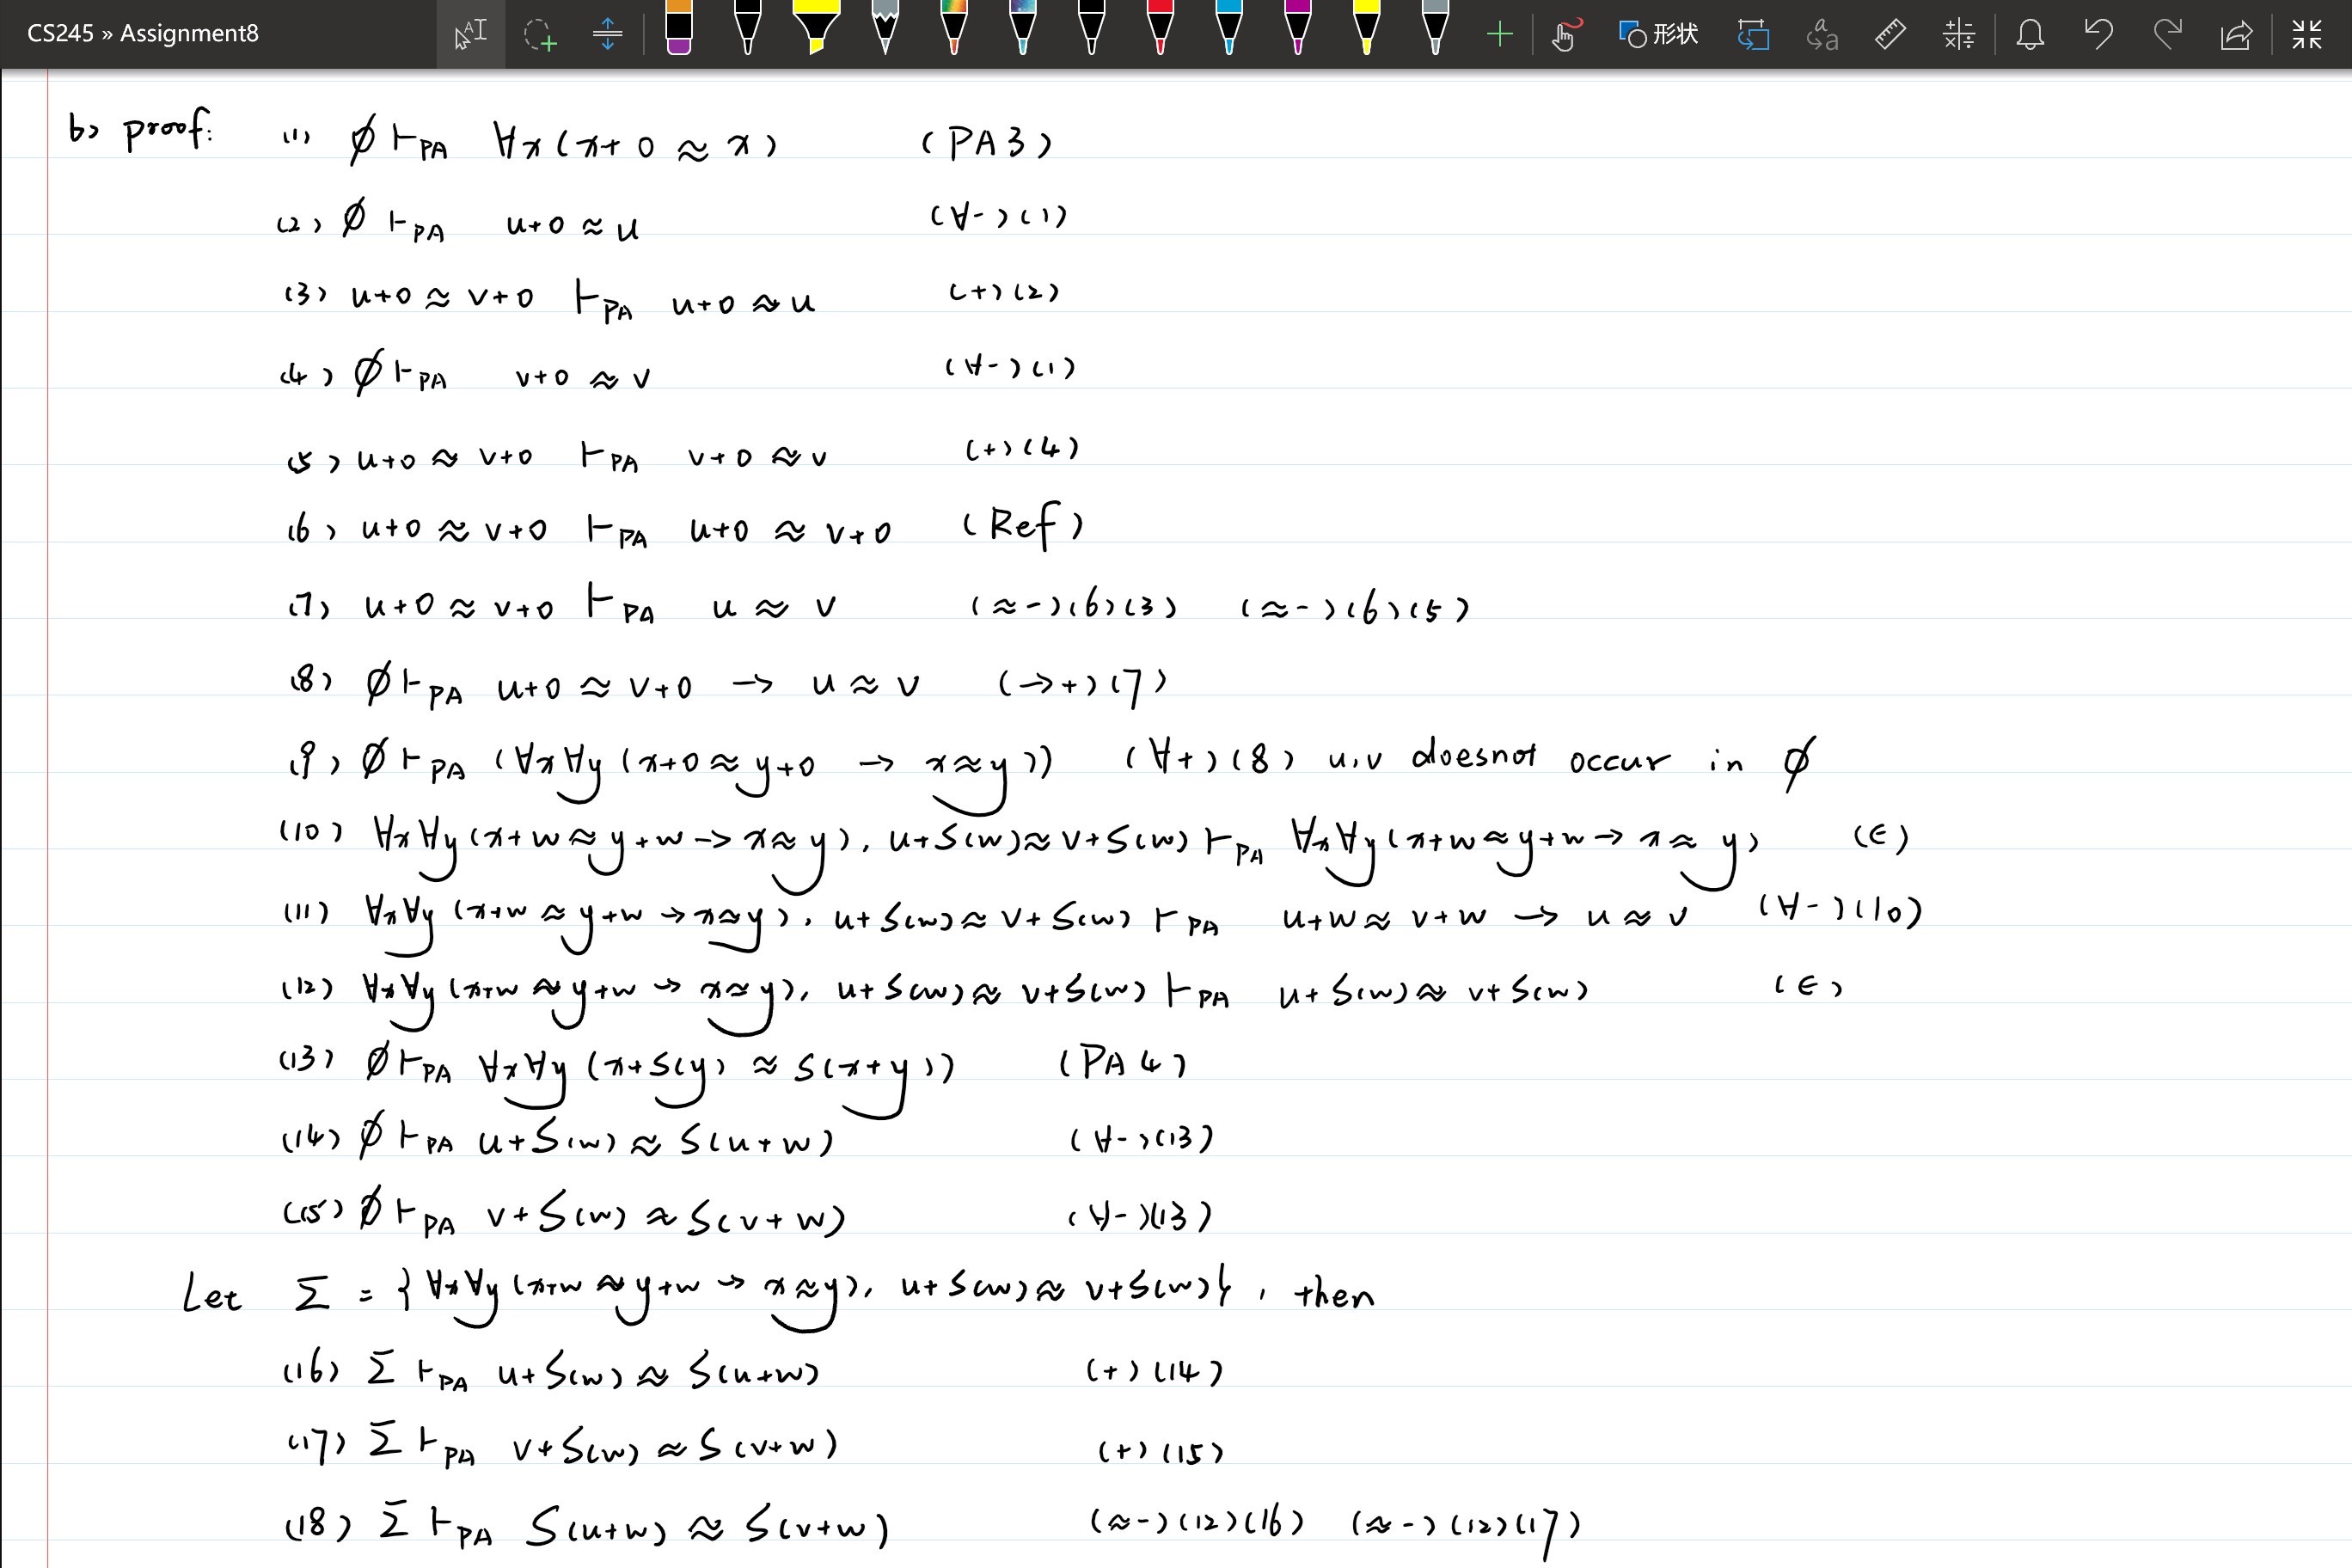 CS245 » Assignment8
形状
b) proof: (1) ∅ ⊢PA ∀x(x+0 ≈ x) (PA3)
(2) ∅ ⊢PA u+0 ≈ u (∀-)(1)
(3) u+0 ≈ v+0 ⊢PA u+0 ≈ u (+)(2)
(4) ∅ ⊢PA v+0 ≈ v (∀-)(1)
(5) u+0 ≈ v+0 ⊢PA v+0 ≈ v (+)(4)
(6) u+0 ≈ v+0 ⊢PA u+0 ≈ v+0 (Ref)
(7) u+0 ≈ v+0 ⊢PA u ≈ v (≈-)(6)(3) (≈-)(6)(5)
(8) ∅ ⊢PA u+0 ≈ v+0 → u ≈ v (→+)(7)
(9) ∅ ⊢PA (∀x∀y(x+0 ≈ y+0 → x ≈ y)) (∀+)(8) u,v doesnot occur in ∅
(10) ∀x∀y(x+w ≈ y+w → x ≈ y), u+S(w) ≈ v+S(w) ⊢PA ∀x∀y(x+w ≈ y+w → x ≈ y) (∈)
(11) ∀x∀y(x+w ≈ y+w → x ≈ y), u+S(w) ≈ v+S(w) ⊢PA u+w ≈ v+w → u ≈ v (∀-)(10)
(12) ∀x∀y(x+w ≈ y+w → x ≈ y), u+S(w) ≈ v+S(w) ⊢PA u+S(w) ≈ v+S(w) (∈)
(13) ∅ ⊢PA ∀x∀y(x+S(y) ≈ S(x+y)) (PA4)
(14) ∅ ⊢PA u+S(w) ≈ S(u+w) (∀-)(13)
(15) ∅ ⊢PA v+S(w) ≈ S(v+w) (∀-)(13)
Let Σ = {∀x∀y(x+w ≈ y+w → x ≈ y), u+S(w) ≈ v+S(w)}, then
(16) Σ ⊢PA u+S(w) ≈ S(u+w) (+)(14)
(17) Σ ⊢PA v+S(w) ≈ S(v+w) (+)(15)
(18) Σ ⊢PA S(u+w) ≈ S(v+w) (≈-)(12)(16) (≈-)(12)(17)